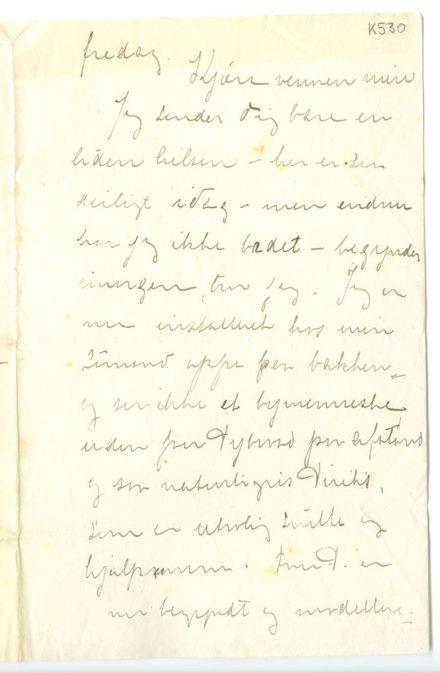 K530
fredag.
Kjäre vennen min
Jeg sender dig bare en
liden hilsen – her er så
deiligt idag – men endnu
har jeg ikke badet – begynder
imorgen, tror jeg. Jeg er
nu installeret hos min
Sømand oppe paa bakken –
og ser ikke et bymenneske
uden fru Dybwad paa afstand
og saa naturligvis Viriks,
som er utrolig snille og
hjælpsomme. Fru D. er
nu begyndt og modellere –